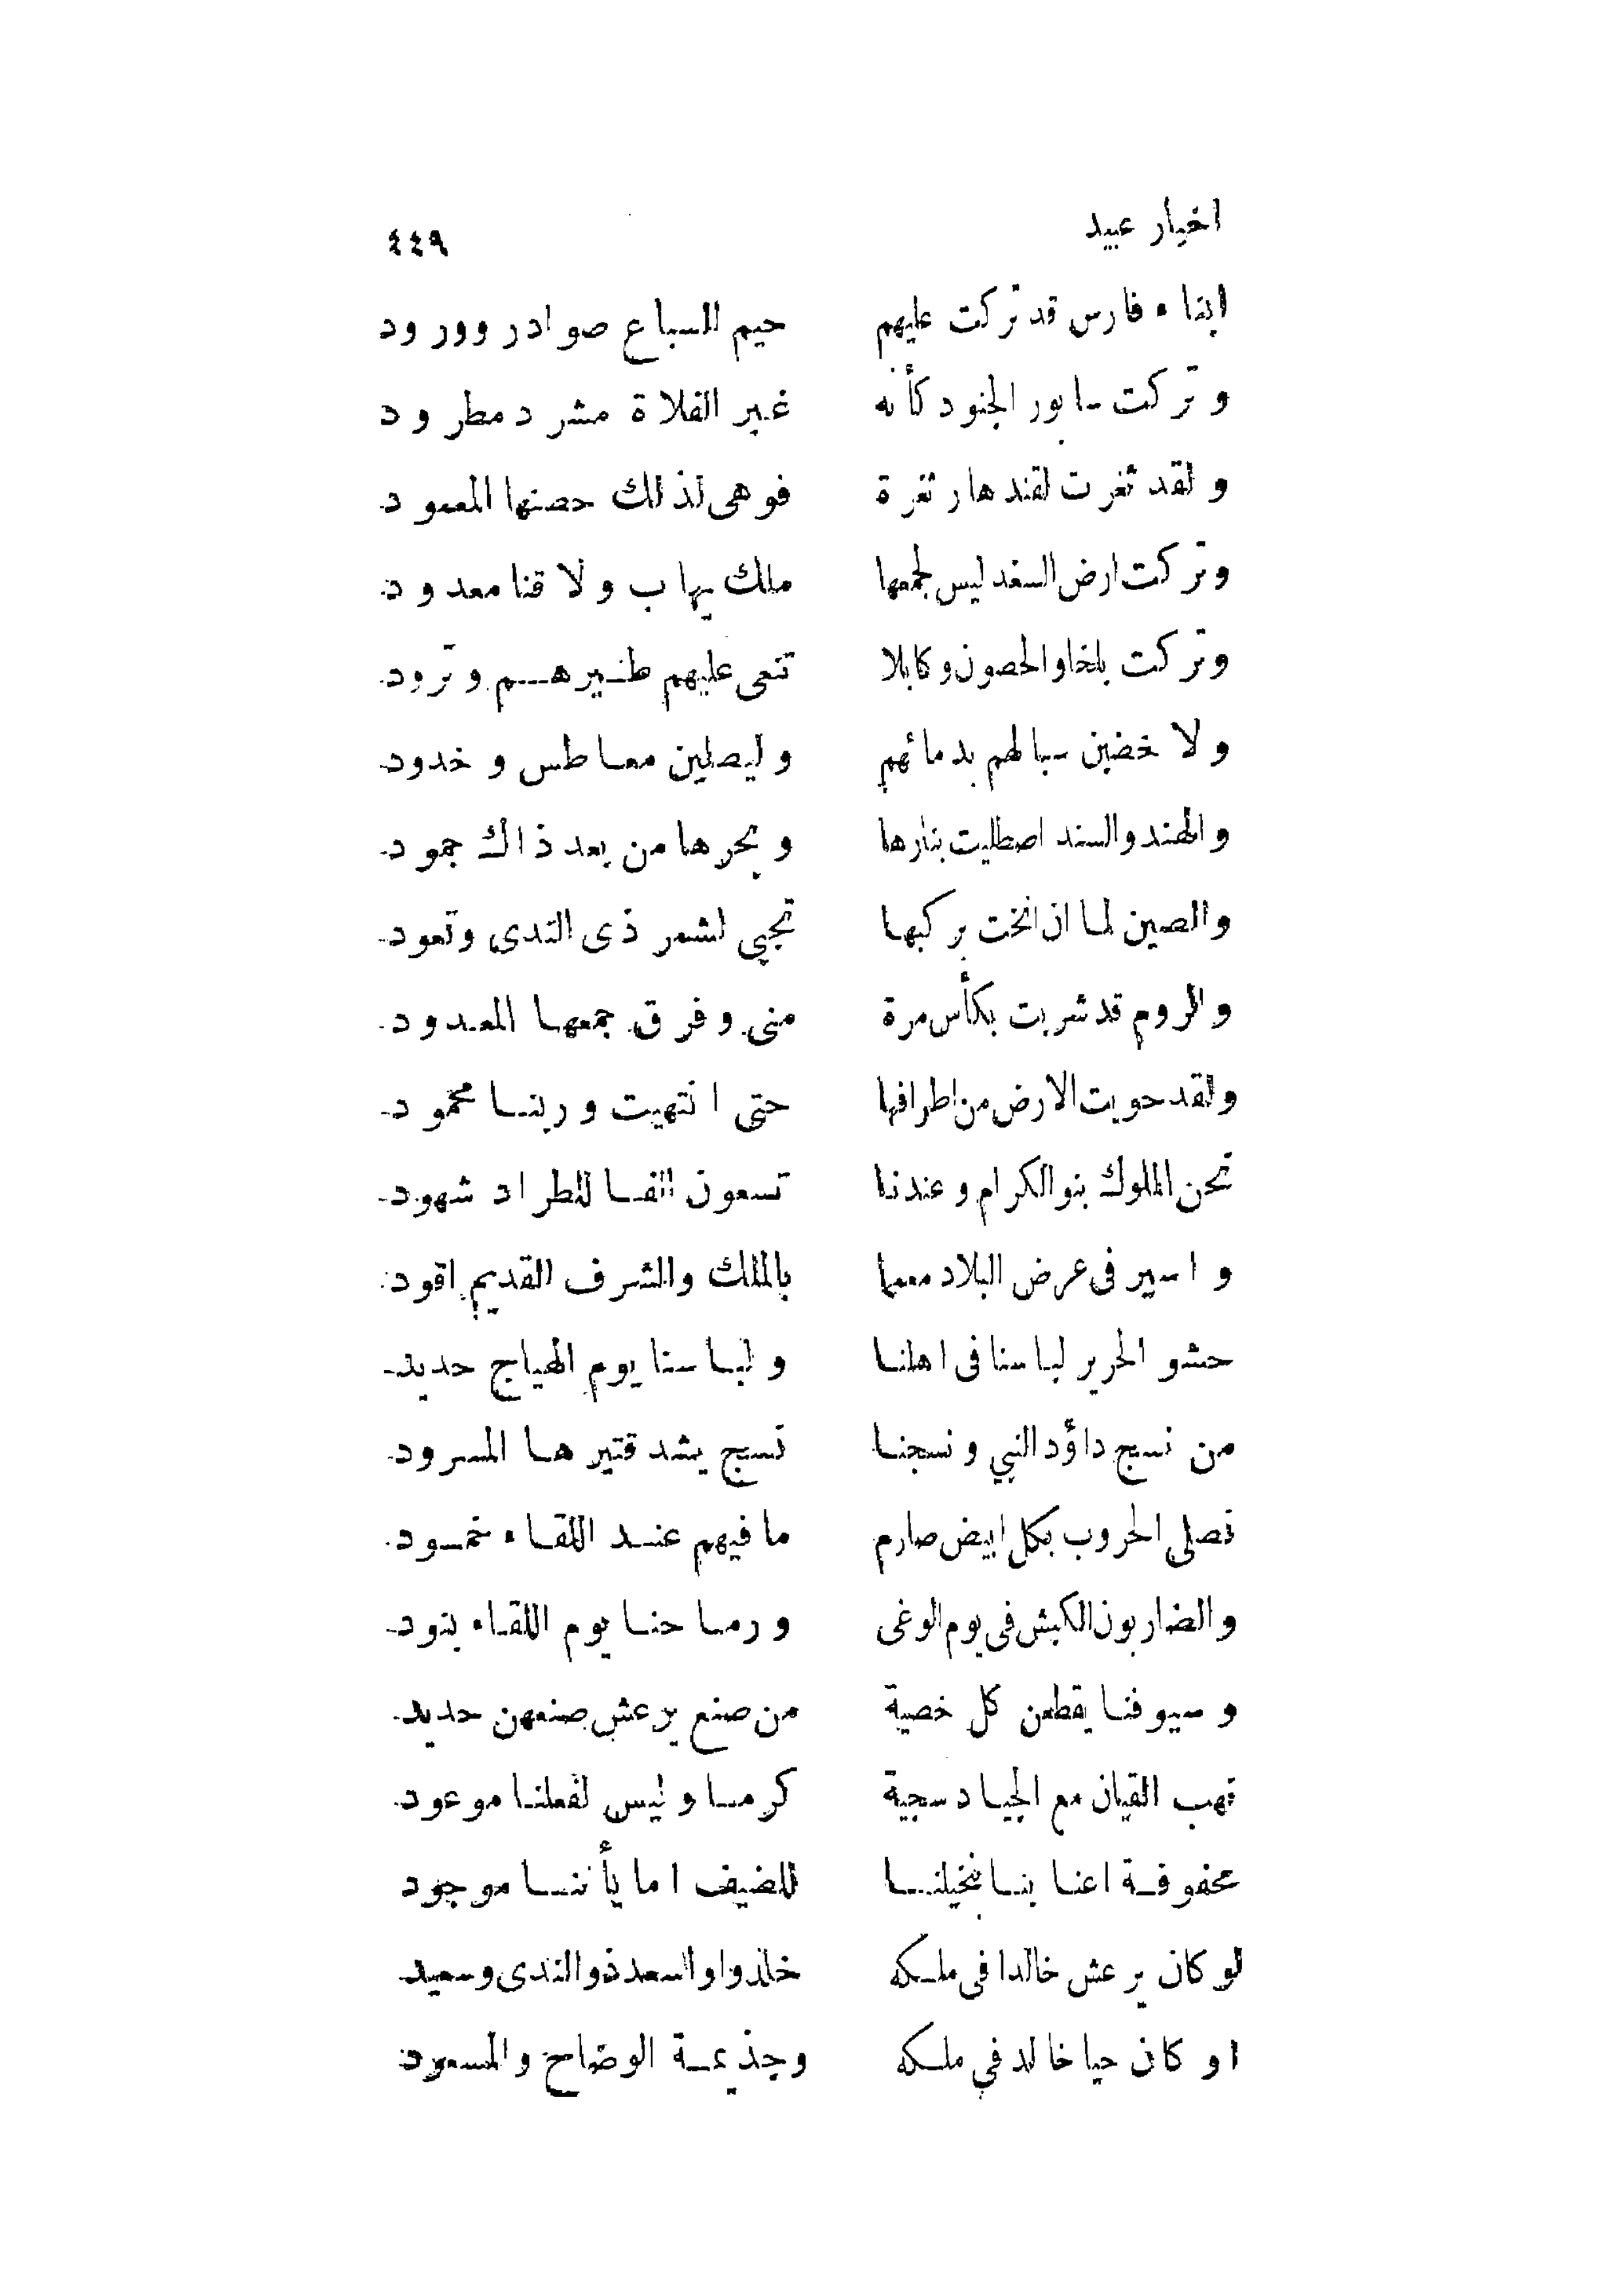 اخبار عبيد ٤٤٩
ابناء فارس قد تركت عليهم حيم للسباع صوادر وورود
وتركت سابور الجنود كأنه غير الفلاة مشرد مطرود
ولقد ثغرت لقندهار ثغرة فوهى لذلك حصنها المعمود
وتركت ارض السغد ليس لجمعها ملك يهاب ولا قنا معدود
وتركت بلخا والحصون وكابلا تنعى عليهم طيرهم وترود
ولا خضبن سبالهم بدمائهم وليصلين معاطس وخدود
والهند والسند اصطليت بنارها وبحرها من بعد ذاك جمود
والصين لما ان انخت بركبها تجبي لشمر ذى الندى وتعود
والروم قد شربت بكأس مرة منى وفرق جمعها المعدود
ولقد حويت الارض من اطرافها حتى انتهيت وربنا محمود
نحن الملوك بنو الكرام وعندنا تسعون الفا للطراد شهود
واسير فى عرض البلاد معمما بالملك والشرف القديم اقود
حشو الحرير لباسنا فى اهلنا ولباسنا يوم الهياج حديد
من نسج داؤد النبي ونسجنا نسج يشد قتيرها المسرود
نصلى الحروب بكل ابيض صارم ما فيهم عند اللقاء خمود
والضاربون الكبش فى يوم الوغى ورماحنا يوم اللقاء بنود
وسيوفنا يقطعن كل خصية من صنع يرعش صنعهن حديد
نهب القيان مع الجياد سجية كرما وليس لفعلنا موعود
محفوفة اعنابنا بنخيلنا للضيف اما يأتنا موجود
لو كان يرعش خالدا فى ملكه خلدوا واسعد ذو الندى وسعيد
او كان حيا خالد في ملكه وجذيمة الوضاح والمسعود